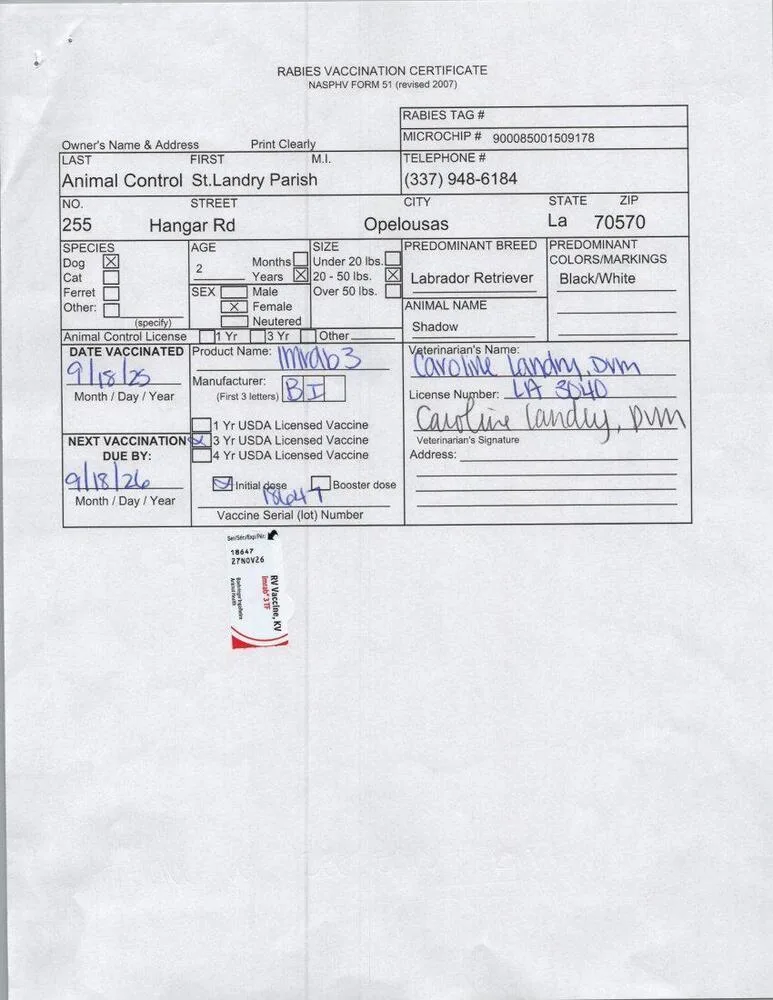 RABIES VACCINATION CERTIFICATE
NASPHV FORM 51 (revised 2007)
RABIES TAG #
MICROCHIP # 900085001509178
Owner's Name & Address Print Clearly
LAST FIRST M.I. TELEPHONE #
Animal Control St.Landry Parish (337) 948-6184
NO. STREET CITY STATE ZIP
255 Hangar Rd Opelousas La 70570
SPECIES AGE SIZE PREDOMINANT BREED PREDOMINANT
COLORS/MARKINGS
Dog Months Under 20 lbs.
Cat 2 Years 20 - 50 lbs. Labrador Retriever Black/White
Ferret SEX Male Over 50 lbs.
Other: Female ANIMAL NAME
(specify) Neutered Shadow
Animal Control License 1 Yr 3 Yr Other
DATE VACCINATED Product Name: Imrab 3 Veterinarian's Name:
9/18/25 Caroline Landry, DVM
Month / Day / Year Manufacturer: BI
(First 3 letters) License Number: LA 3040
1 Yr USDA Licensed Vaccine Caroline Landry, DVM
NEXT VACCINATION 3 Yr USDA Licensed Vaccine Veterinarian's Signature
DUE BY: 4 Yr USDA Licensed Vaccine Address:
9/18/26 Initial dose Booster dose
Month / Day / Year 18647
Vaccine Serial (lot) Number
Ser/Sér/Exp/Nr:
18647
27NOV26
RV Vaccine, KV
Imrab® 3 TF
Boehringer Ingelheim
Animal Health